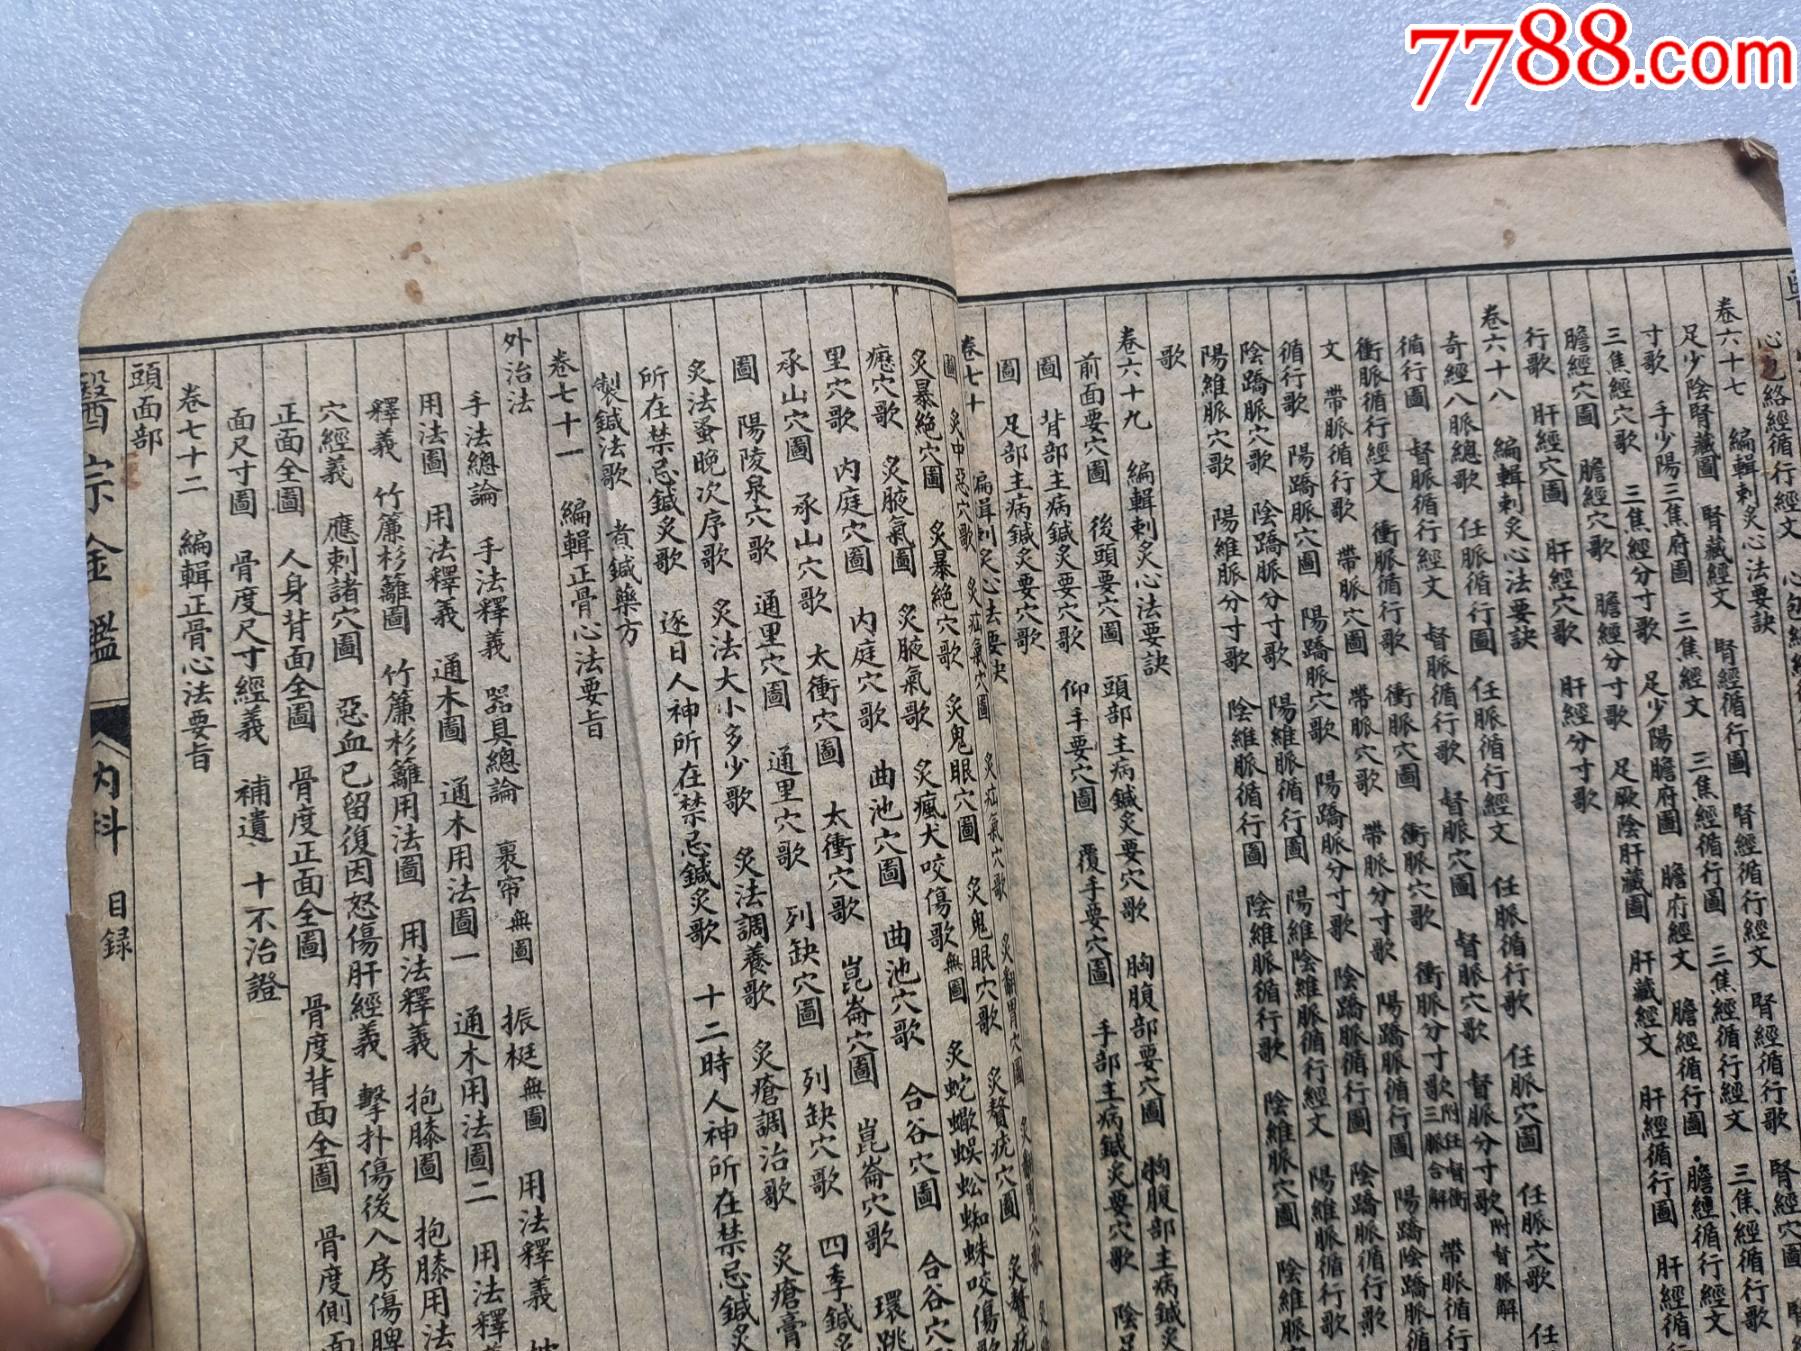 7788.com
心包絡經循行文　心包絡經
卷六十七　編輯刺灸心法要訣
足少陰腎藏圖　腎藏經文　腎經循行圖　腎經循行經文　腎經循行歌　腎經穴圖
寸歌　手少陽三焦府圖　三焦經文　三焦經循行圖　三焦經循行經文　三焦經循行歌
三焦經穴歌　三焦經分寸歌　足少陽膽府圖　膽府經文　膽經循行圖　膽經循行經文
膽經穴圖　膽經穴歌　膽經分寸歌　足厥陰肝藏圖　肝藏經文　肝經循行圖　肝經循行經
行歌　肝經穴圖　肝經穴歌　肝經分寸歌
卷六十八　編輯刺灸心法要訣
奇經八脈總歌　任脈循行圖　任脈循行經文　任脈循行歌　任脈穴圖　任脈穴歌　任
循行圖　督脈循行經文　督脈循行歌　督脈穴圖　督脈穴歌　督脈分寸歌附督脈解
衝脈循行經文　衝脈循行歌　衝脈穴圖　衝脈穴歌　衝脈分寸歌附任督衝三脈合解　帶脈循行
文　帶脈循行歌　帶脈穴圖　帶脈穴歌　帶脈分寸歌　陽蹻脈循行圖　陽蹻陰蹻脈循
循行歌　陽蹻脈穴圖　陽蹻脈穴歌　陽蹻脈分寸歌　陰蹻脈循行圖　陰蹻脈循行歌
陰蹻脈穴歌　陰蹻脈分寸歌　陽維脈循行圖　陽維陰維脈循行經文　陽維脈循行歌
陽維脈穴歌　陽維脈分寸歌　陰維脈循行圖　陰維脈循行歌　陰維脈穴圖　陰維脈
歌
卷六十九　編輯刺灸心法要訣
前面要穴圖　後頭要穴圖　頭部主病鍼灸要穴歌　胸腹部要穴圖　胸腹部主病鍼灸
圖　背部主病鍼灸要穴歌　仰手要穴圖　覆手要穴圖　手部主病鍼灸要穴歌　陰足
圖　足部主病鍼灸要穴歌
卷七十　編輯刺灸心法要訣
圖　灸中惡穴歌　灸疝氣穴圖　灸疝氣穴歌　灸翻胃穴圖　灸翻胃穴歌
灸暴絕穴圖　灸暴絕穴歌　灸鬼眼穴圖　灸鬼眼穴歌　灸贅疣穴圖　灸贅疣
癧穴歌　灸腋氣圖　灸腋氣歌　灸瘋犬咬傷歌無圖　灸蛇蠍蜈蚣蜘蛛咬傷歌
里穴歌　內庭穴圖　內庭穴歌　曲池穴圖　曲池穴歌　合谷穴圖　合谷穴
承山穴圖　承山穴歌　太衝穴圖　太衝穴歌　崑崙穴圖　崑崙穴歌　環跳
圖　陽陵泉穴歌　通里穴圖　通里穴歌　列缺穴圖　列缺穴歌　四季鍼灸
灸法蚤晚次序歌　灸法大小多少歌　灸法調養歌　灸瘡調治歌　灸瘡膏
所在禁忌鍼灸歌　逐日人神所在禁忌鍼灸歌　十二時人神所在禁忌鍼灸
製鍼法歌　煮鍼藥方
卷七十一　編輯正骨心法要旨
外治法　手法總論　手法釋義　器具總論　裹帘無圖　振梃無圖　用法釋義　披
用法圖　用法釋義　通木圖　通木用法圖一　通木用法圖二　用法釋義
釋義　竹簾杉籬圖　竹簾杉籬用法圖　用法釋義　抱膝圖　抱膝用法
穴經義　應刺諸穴圖　惡血已留復因怒傷肝經義　擊扑傷後入房傷脾
正面全圖　人身背面全圖　骨度正面全圖　骨度背面全圖　骨度側面
面尺寸圖　骨度尺寸經義　補遺　十不治證
卷七十二　編輯正骨心法要旨
頭面部
醫宗金鑑　內科　目錄